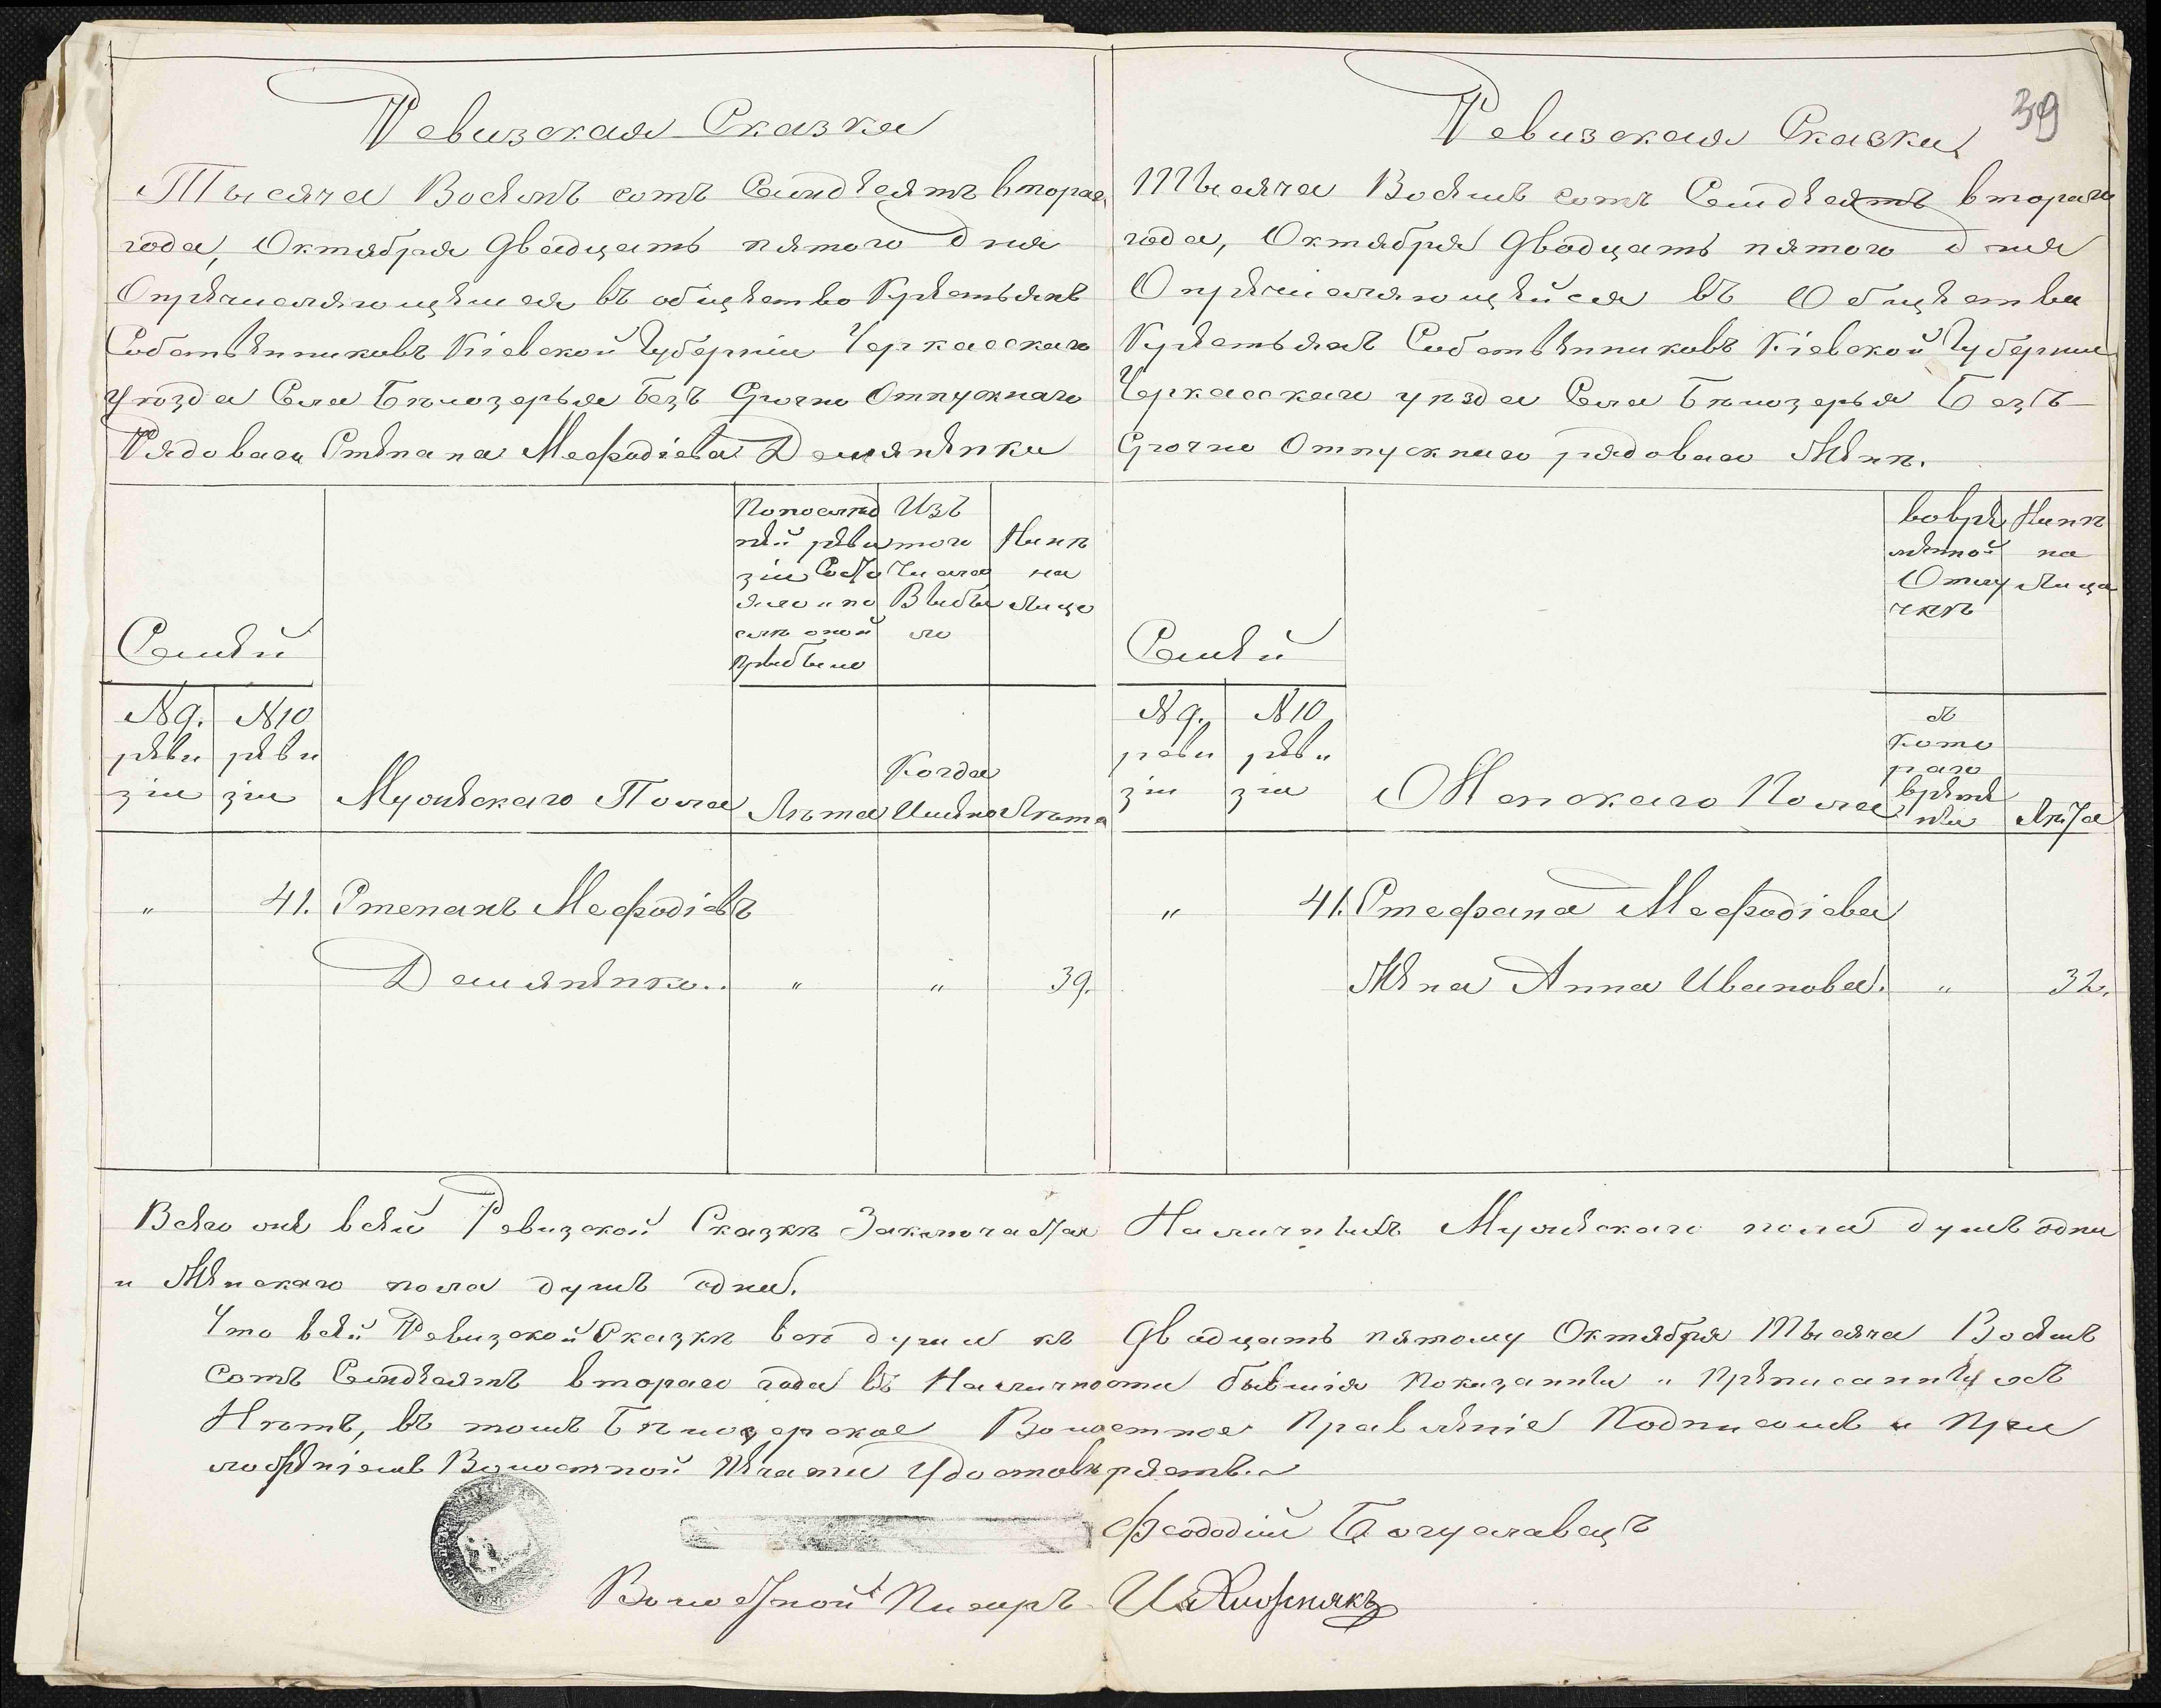 Ревизская Сказка
Тысяча Восемъ сотъ Семдесятъ втораго
года, Октября двадцать пятого дня
О причисляющемся въ общество Крестьянъ
Собственниковъ Кіевской Губерніи Черкасскаго
уѣзда Села Бѣлозерья Безъ Срочно Отпускнаго
Рядоваго Степана Мефодіева Демяненка
Семей
№ 9. ревизіи
№ 10 ревизіи
Мужескаго Пола
По послѣдней ревизіи Состояло и послѣ оной прибыло
Изъ того Числа Выбыло
Нинѣ на Лицо
Лѣта
Когда Именно
Лѣта
" 41. Степанъ Мефодіевъ
Демяненко.. " " 39.
39
Ревизская Сказка
Тысяча Восемъ сотъ Семдесятъ втораго
года, Октября двадцать пятого дня
О причисляющейся въ Общества
Крестьянъ Собственниковъ Кіевской Губерніи
Черкасскаго уѣзда Села Бѣлозерья Безъ
Срочно Отпускнаго рядоваго Женѣ.
Семей
№ 9. ревизіи
№ 10 ревизіи
Женскаго Пола
во временной Отлучкѣ
Нинѣ на Лица
съ Которого времени
Лѣта
" 41. Стефана Мефодіева
Жена Анна Иванова. " 32.
Всего же в сей Ревизской Сказкѣ Заключается Наличныхъ Мужескаго пола душъ одна
и Женскаго пола душъ одна.
Что в сей Ревизской Сказкѣ всѣ души къ двадцать пятому Октября Тысяча Восемъ
сотъ Семдесятъ втораго года въ Наличности бывшія показанны и Приписанныхъ
Нѣтъ, въ томъ Бѣлозерское Волостное Правленіе Подписомъ и При
ложеніемъ Волостной Печати Удостовѣряетъ.
Феодосій Богуславецъ
Волостной Писарь